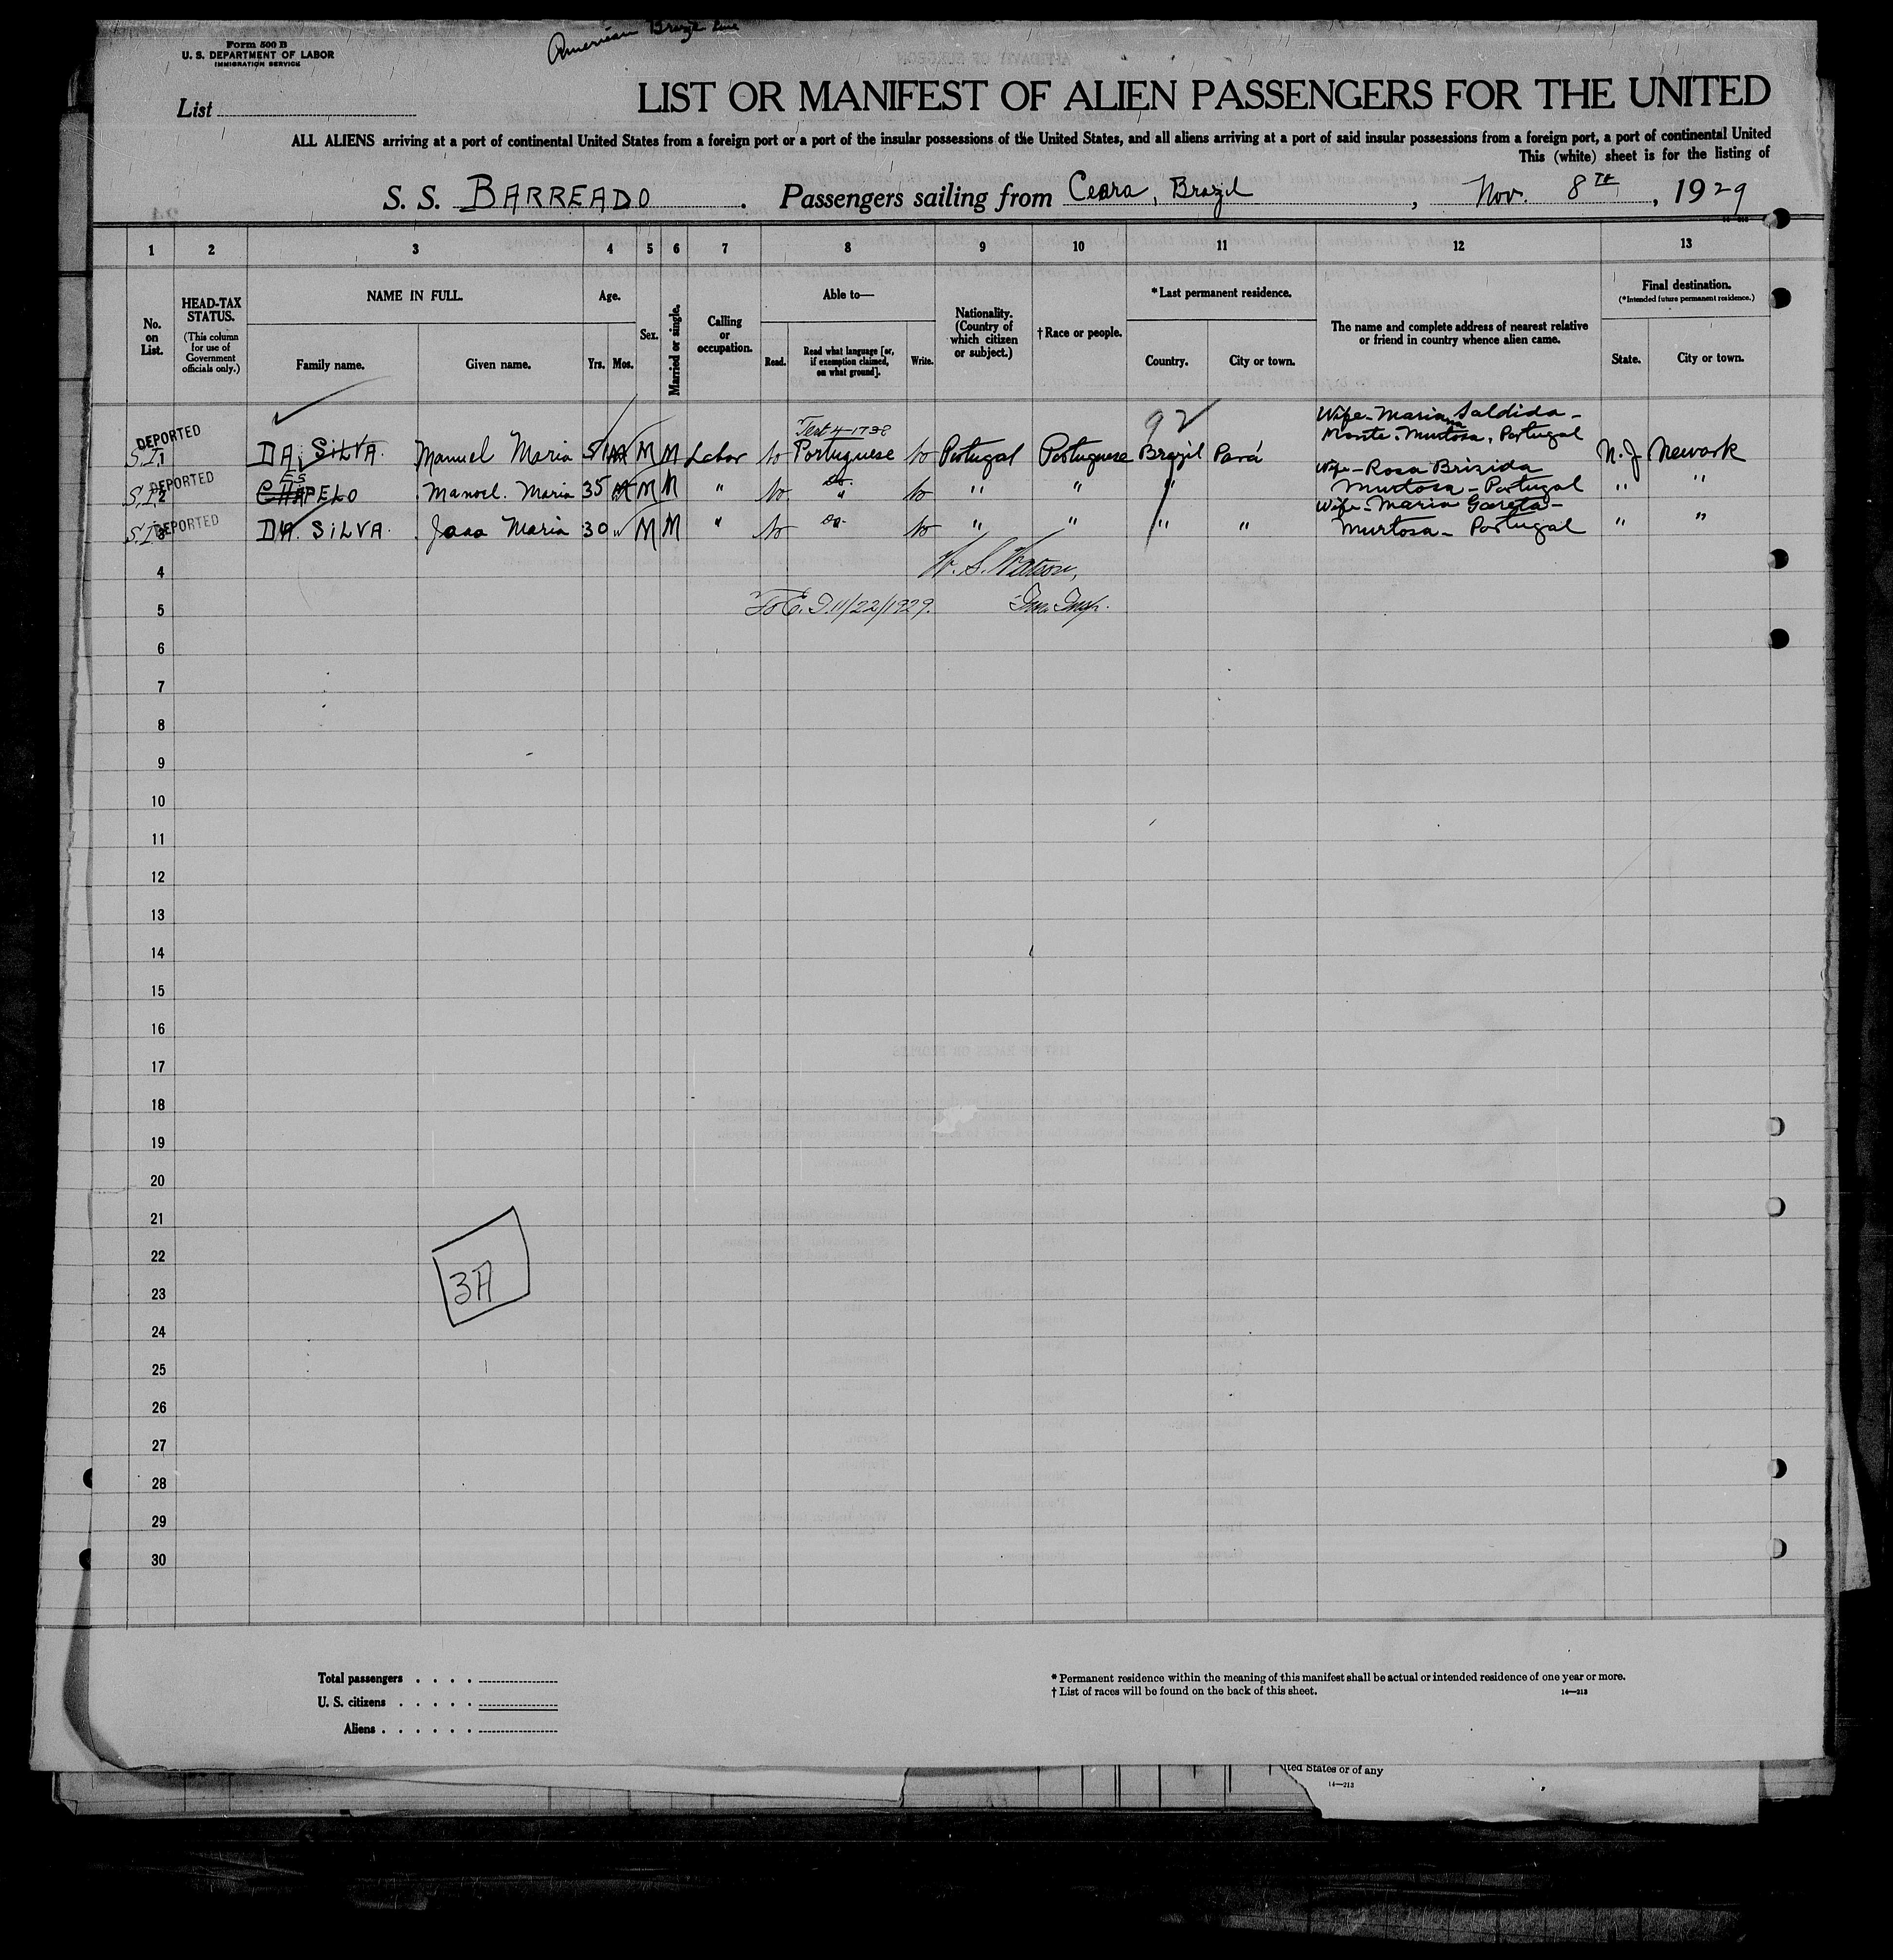 Form 500 B
U. S. DEPARTMENT OF LABOR
IMMIGRATION SERVICE
American Brazil Line
List
LIST OR MANIFEST OF ALIEN PASSENGERS FOR THE UNITED
ALL ALIENS arriving at a port of continental United States from a foreign port or a port of the insular possessions of the United States, and all aliens arriving at a port of said insular possessions from a foreign port, a port of continental United
This (white) sheet is for the listing of
S. S. BARREADO. Passengers sailing from Ceara, Brazil, Nov. 8TH, 1929
1 2 3 4 5 6 7 8 9 10 11 12 13
No. on List.
HEAD-TAX STATUS.
(This column for use of Government officials only.)
NAME IN FULL.
Family name. Given name.
Age.
Yrs. Mos.
Sex.
Married or single.
Calling or occupation.
Able to—
Read. Read what language [or, if exemption claimed, on what ground]. Write.
Nationality. (Country of which citizen or subject.)
† Race or people.
*Last permanent residence.
Country. City or town.
The name and complete address of nearest relative or friend in country whence alien came.
Final destination.
(*Intended future permanent residence.)
State. City or town.
92
Test 4-1738
Wife - Maria Saldida -
Monte. Murtosa, Portugal
DEPORTED
S.I. 1 DA SILVA. Manuel Maria 51 M M Labor No Portuguese No Portugal Portuguese Brazil Pará N.J Newark
Wife - Rosa Brizida
Murtosa - Portugal
DEPORTED
S.I. 2 CHAPELO Manoel. Maria 35 M M " No " No " " " " "
Wife - Maria Gareta -
Murtosa - Portugal
DEPORTED
S.I. 3 DA. SILVA. Joao Maria 30 M M " No do. No " " " " " "
4
W. S. Watson,
5
11/22/1929. Imm. Insp.
6
7
8
9
10
11
12
13
14
15
16
17
18
19
20
21
22
23
3A
24
25
26
27
28
29
30
Total passengers
U. S. citizens
Aliens
* Permanent residence within the meaning of this manifest shall be actual or intended residence of one year or more.
† List of races will be found on the back of this sheet.
14—213
ited States or of any
14—213